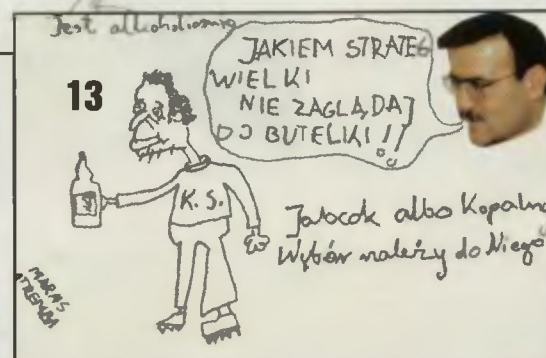 Jest alkoholiczmię
13
JAKIEM STRATEG
WIELKI
NIE ZAGLĄDAJ
DO BUTELKI !!
K. S.
albo Kopalnia
Wybór należy do Niego
MARAS
TREMBA